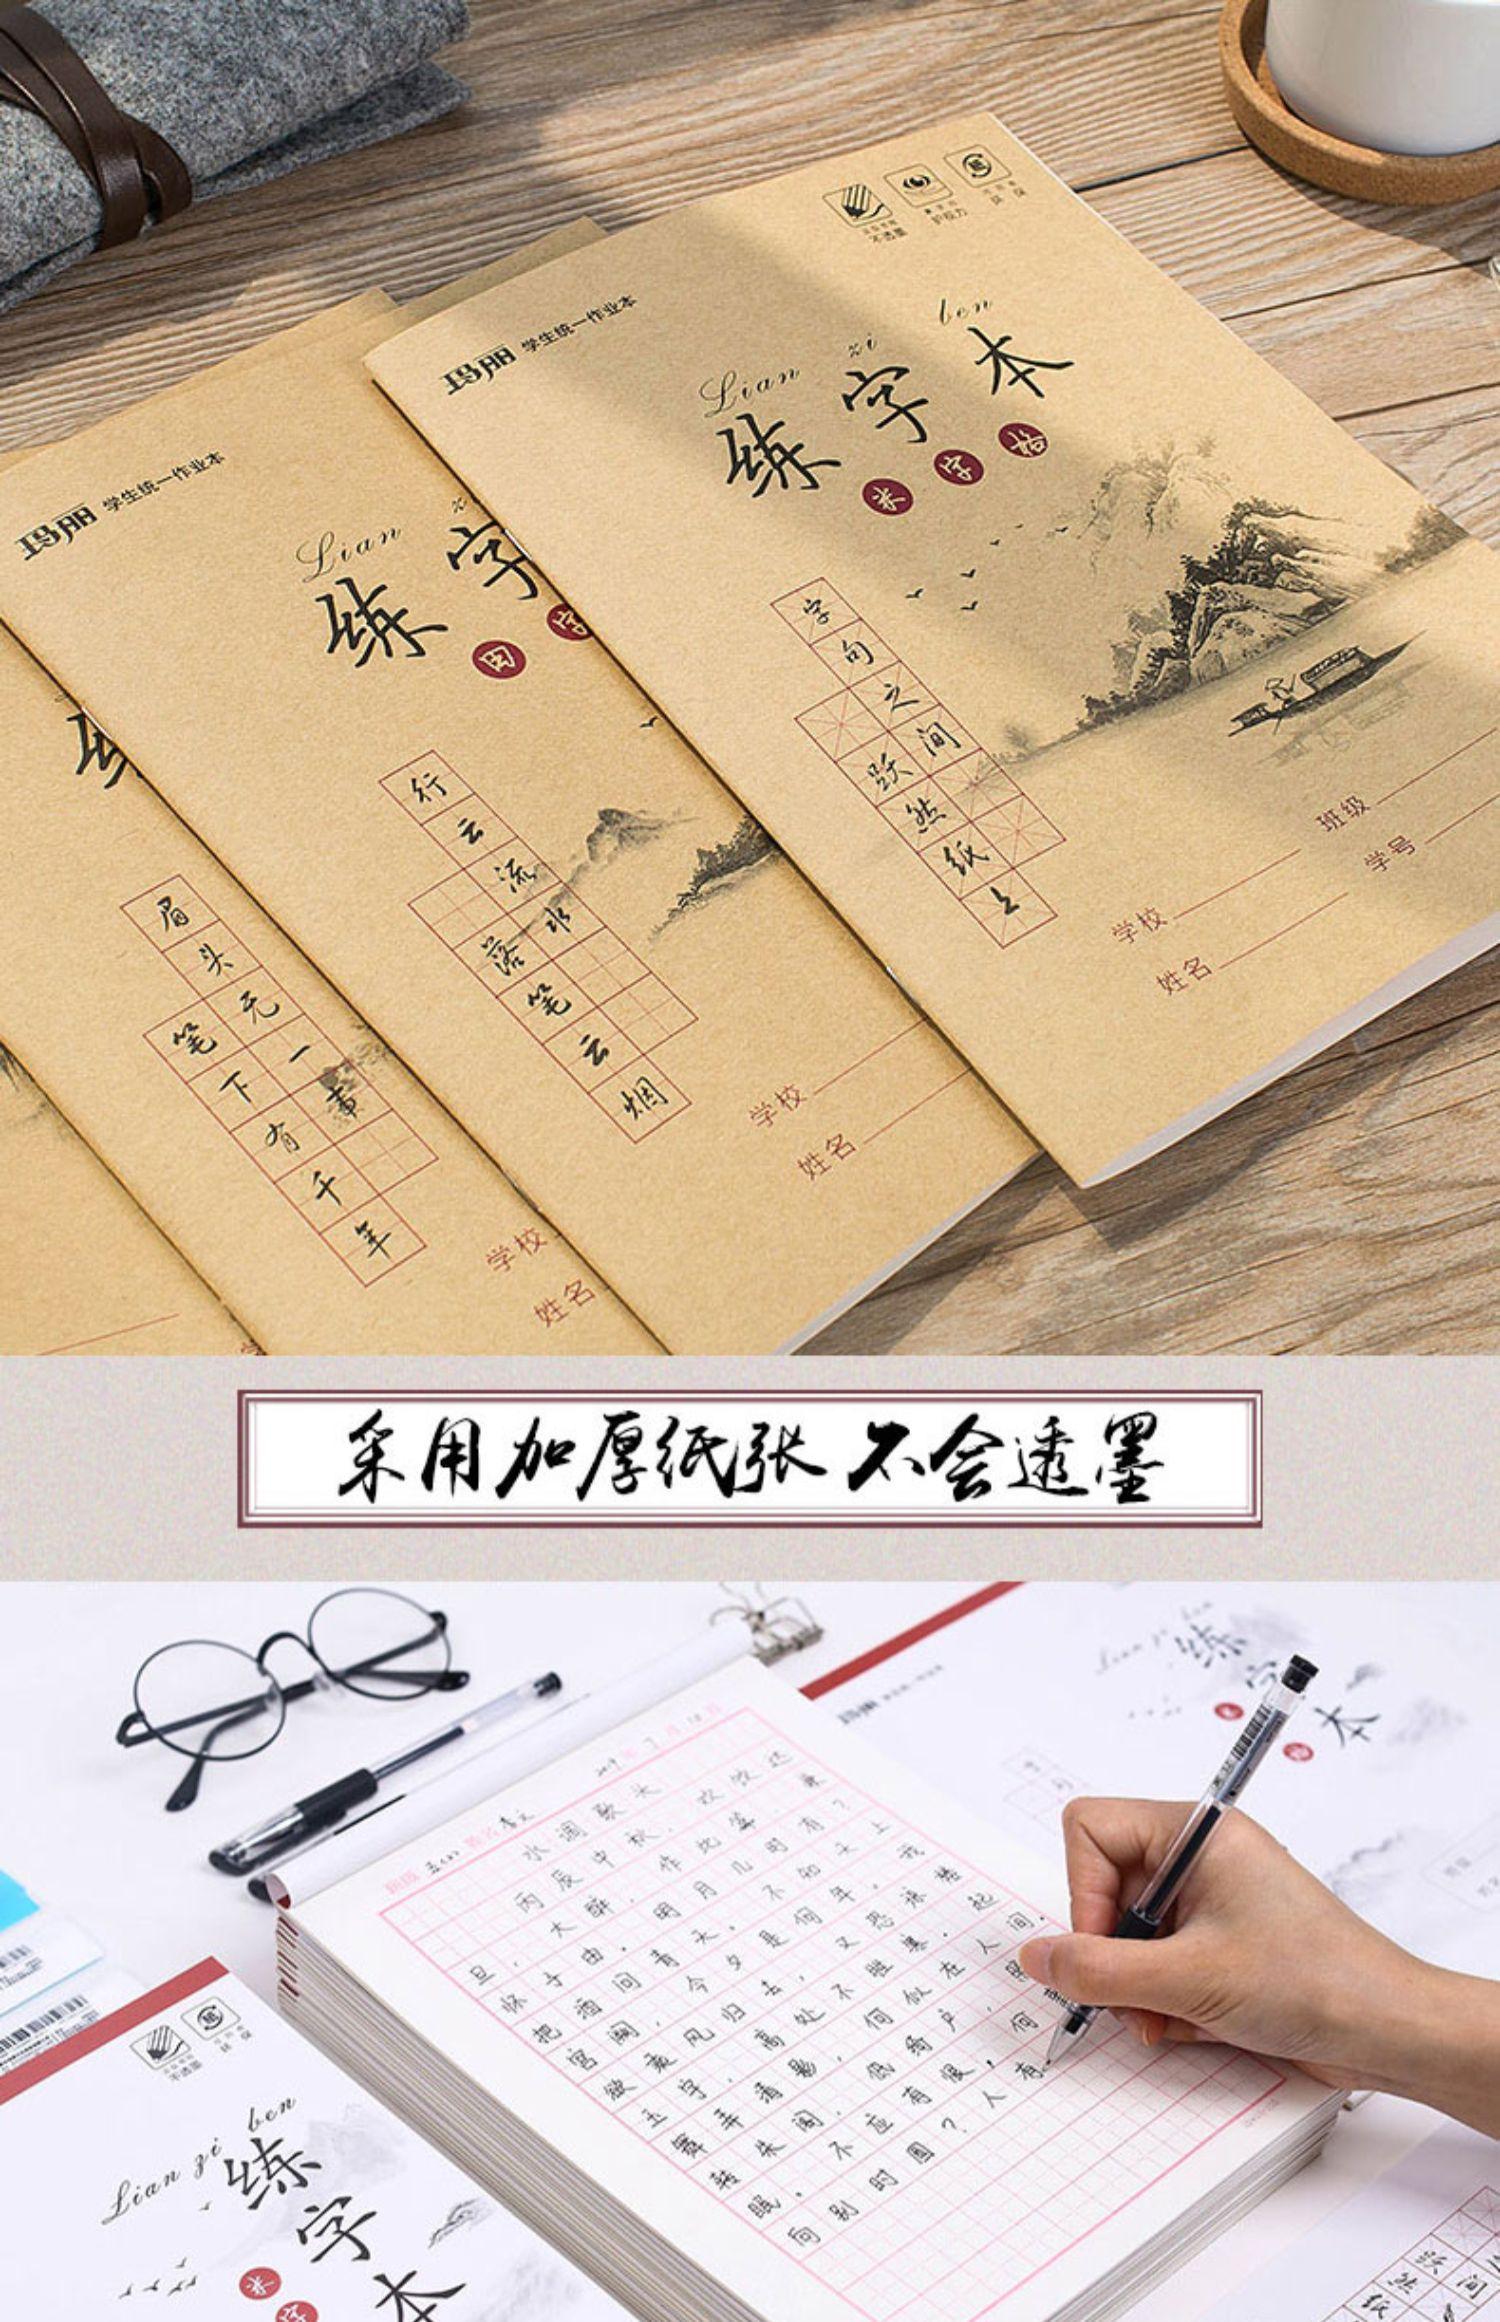 不透墨
护视力
环保
玛丽 学生统一作业本
Lian zi ben
练字本
米字格
字句之间
跃然纸上
班级
学号
学校
姓名
玛丽 学生统一作业本
Lian zi
练字
田字
行云流水
落笔云烟
学校
姓名
眉头无一事
笔下有千年
学校
姓名
采用加厚纸张 不会透墨
Lian zi ben
练字本
米
2019年7月10日
水调歌头
丙辰中秋，欢饮达
旦，大醉，作此篇，兼
怀子由。明月几时有？
把酒问青天。不知天上
宫阙，今夕是何年。我
欲乘风归去，又恐琼楼
玉宇，高处不胜寒。起
舞弄清影，何似在人间。
转朱阁，低绮户，照
眠。不应有恨，何
向别时圆？人有
不透墨
环保
Lian zi ben
练字本
米字
跃然纸
间